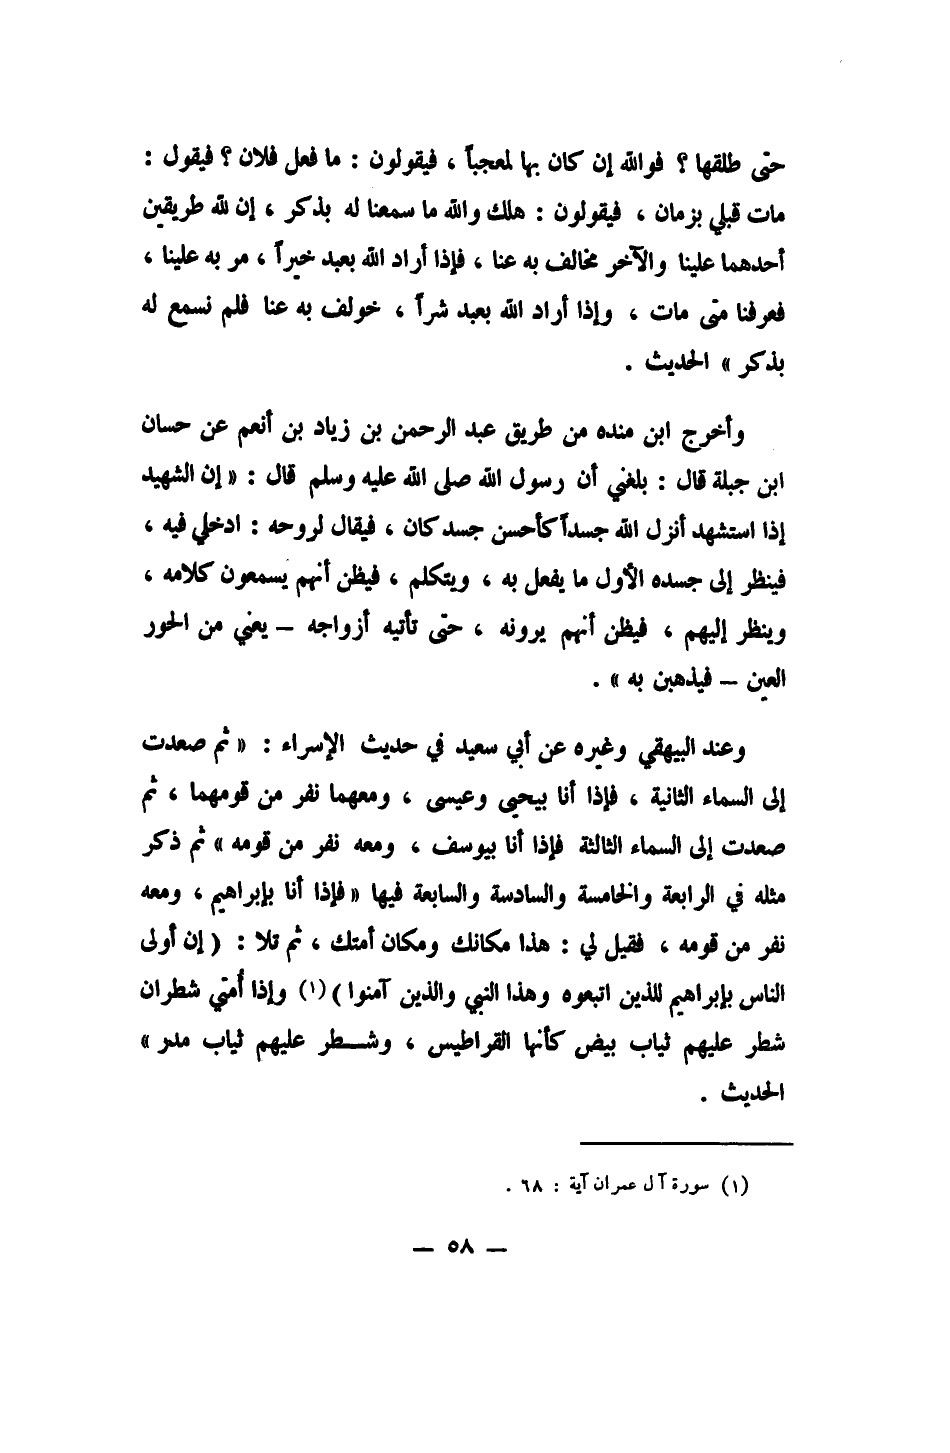 حتّى طلقها ؟ فوالله إن كان بها لمعجباً ، فيقولون : ما فعل فلان ؟ فيقول :
مات قبلي بزمان ، فيقولون : هلك والله ما سمعنا له بذكر ، إن لله طريقين
أحدهما علينا والآخر مخالف به عنا ، فإذا أراد الله بعبد خيراً ، مر به علينا ،
فعرفنا متى مات ، وإذا أراد الله بعبد شراً ، خولف به عنا فلم نسمع له
بذكر » الحديث .
وأخرج ابن منده من طريق عبد الرحمن بن زياد بن أنعم عن حسان
ابن جبلة قال : بلغني أن رسول الله صلى الله عليه وسلم قال : « إن الشهيد
إذا استشهد أنزل الله جسداً كأحسن جسد كان ، فيقال لروحه : ادخلي فيه ،
فينظر إلى جسده الأول ما يفعل به ، ويتكلم ، فيظن أنهم يسمعون كلامه ،
وينظر إليهم ، فيظن أنهم يرونه ، حتّى تأتيه أزواجه – يعني من الحور
العين – فيذهبن به » .
وعند البيهقي وغيره عن أبي سعيد في حديث الإسراء : « ثم صعدت
إلى السماء الثانية ، فإذا أنا بيحيى وعيسى ، ومعهما نفر من قومهما ، ثم
صعدت إلى السماء الثالثة فإذا أنا بيوسف ، ومعه نفر من قومه » ثم ذكر
مثله في الرابعة والخامسة والسادسة والسابعة فيها « فإذا أنا بإبراهيم ، ومعه
نفر من قومه ، فقيل لي : هذا مكانك ومكان أمتك ، ثم تلا : ( إن أولى
الناس بإبراهيم للذين اتبعوه وهذا النبي والذين آمنوا ) (١) وإذا أُمتي شطران
شطر عليهم ثياب بيض كأنها القراطيس ، وشطر عليهم ثياب مدر »
الحديث .
(١) سورة آل عمران آية : ٦٨ .
– ٥٨ –